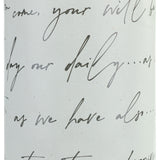 come, your will b
day our daily...as
as we have als...